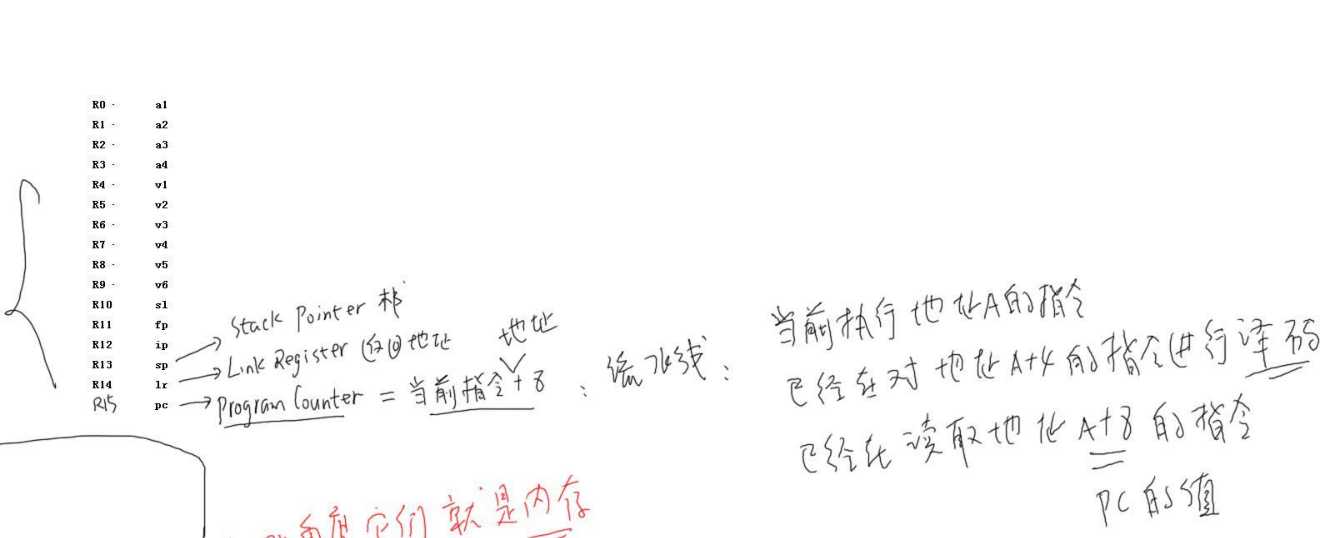 R0 - a1
R1 - a2
R2 - a3
R3 - a4
R4 - v1
R5 - v2
R6 - v3
R7 - v4
R8 - v5
R9 - v6
R10 sl
R11 fp
R12 ip
R13 sp Stack Pointer 栈
R14 lr Link Register 返回地址
R15 pc Program Counter = 当前指令地址+8 : 流水线:
当前执行地址A的指令
已经在对地址A+4的指令进行译码
已经在读取地址A+8的指令
PC的值
它们就是内存